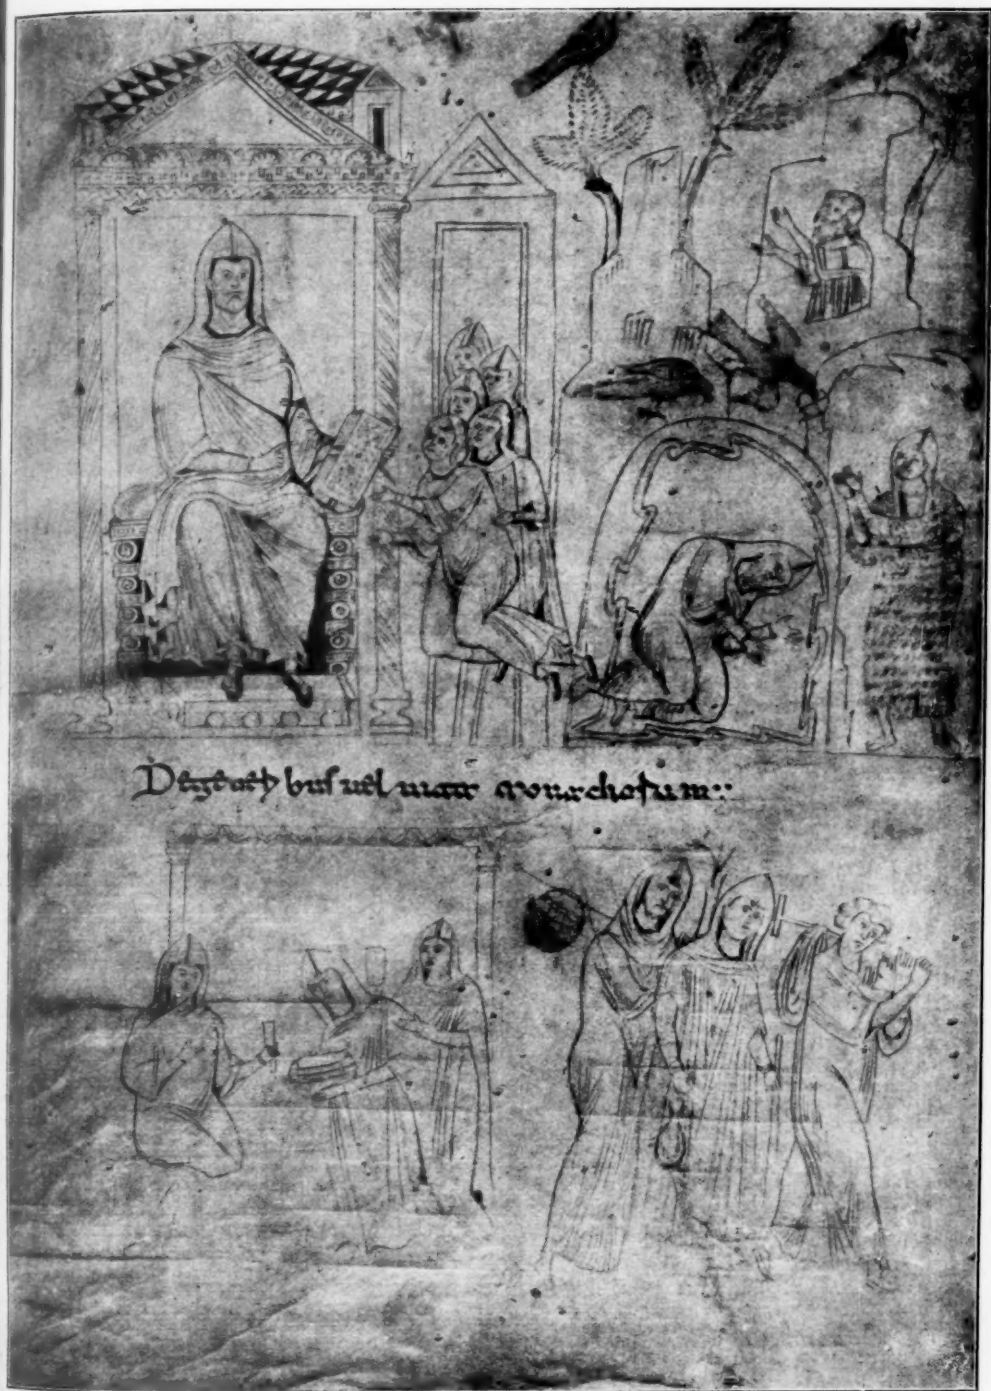 De generibus uel uita monachorum:·